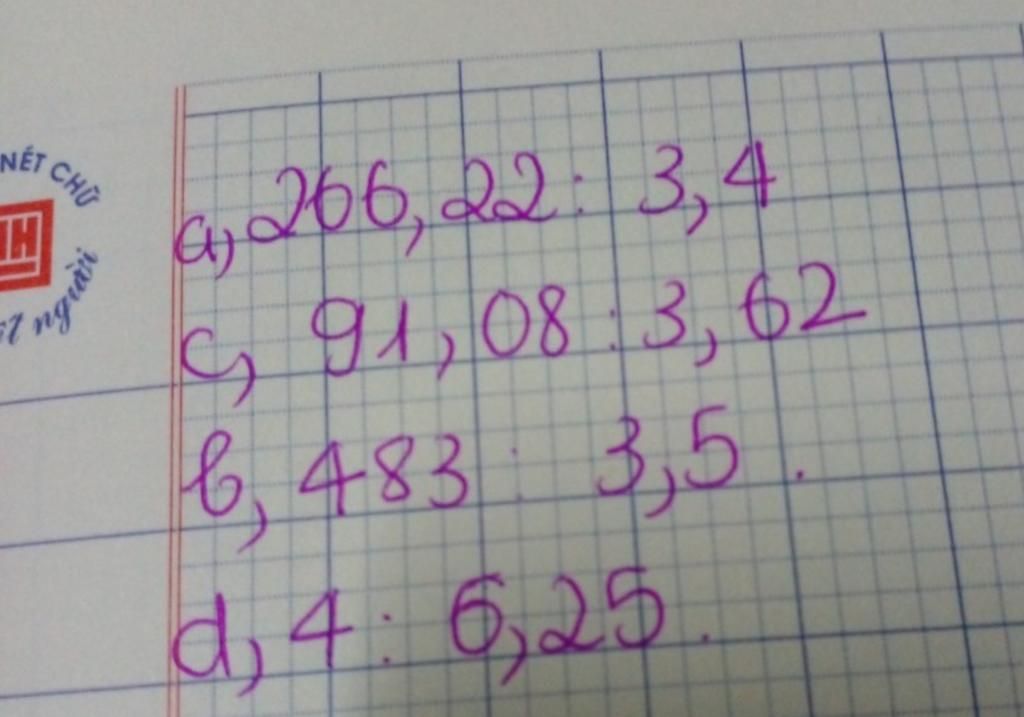 NÉT CHỮ
người
a, 266,22 : 3,4
c, 91,08 : 3,62
b, 483 : 3,5.
d, 4 : 6,25.